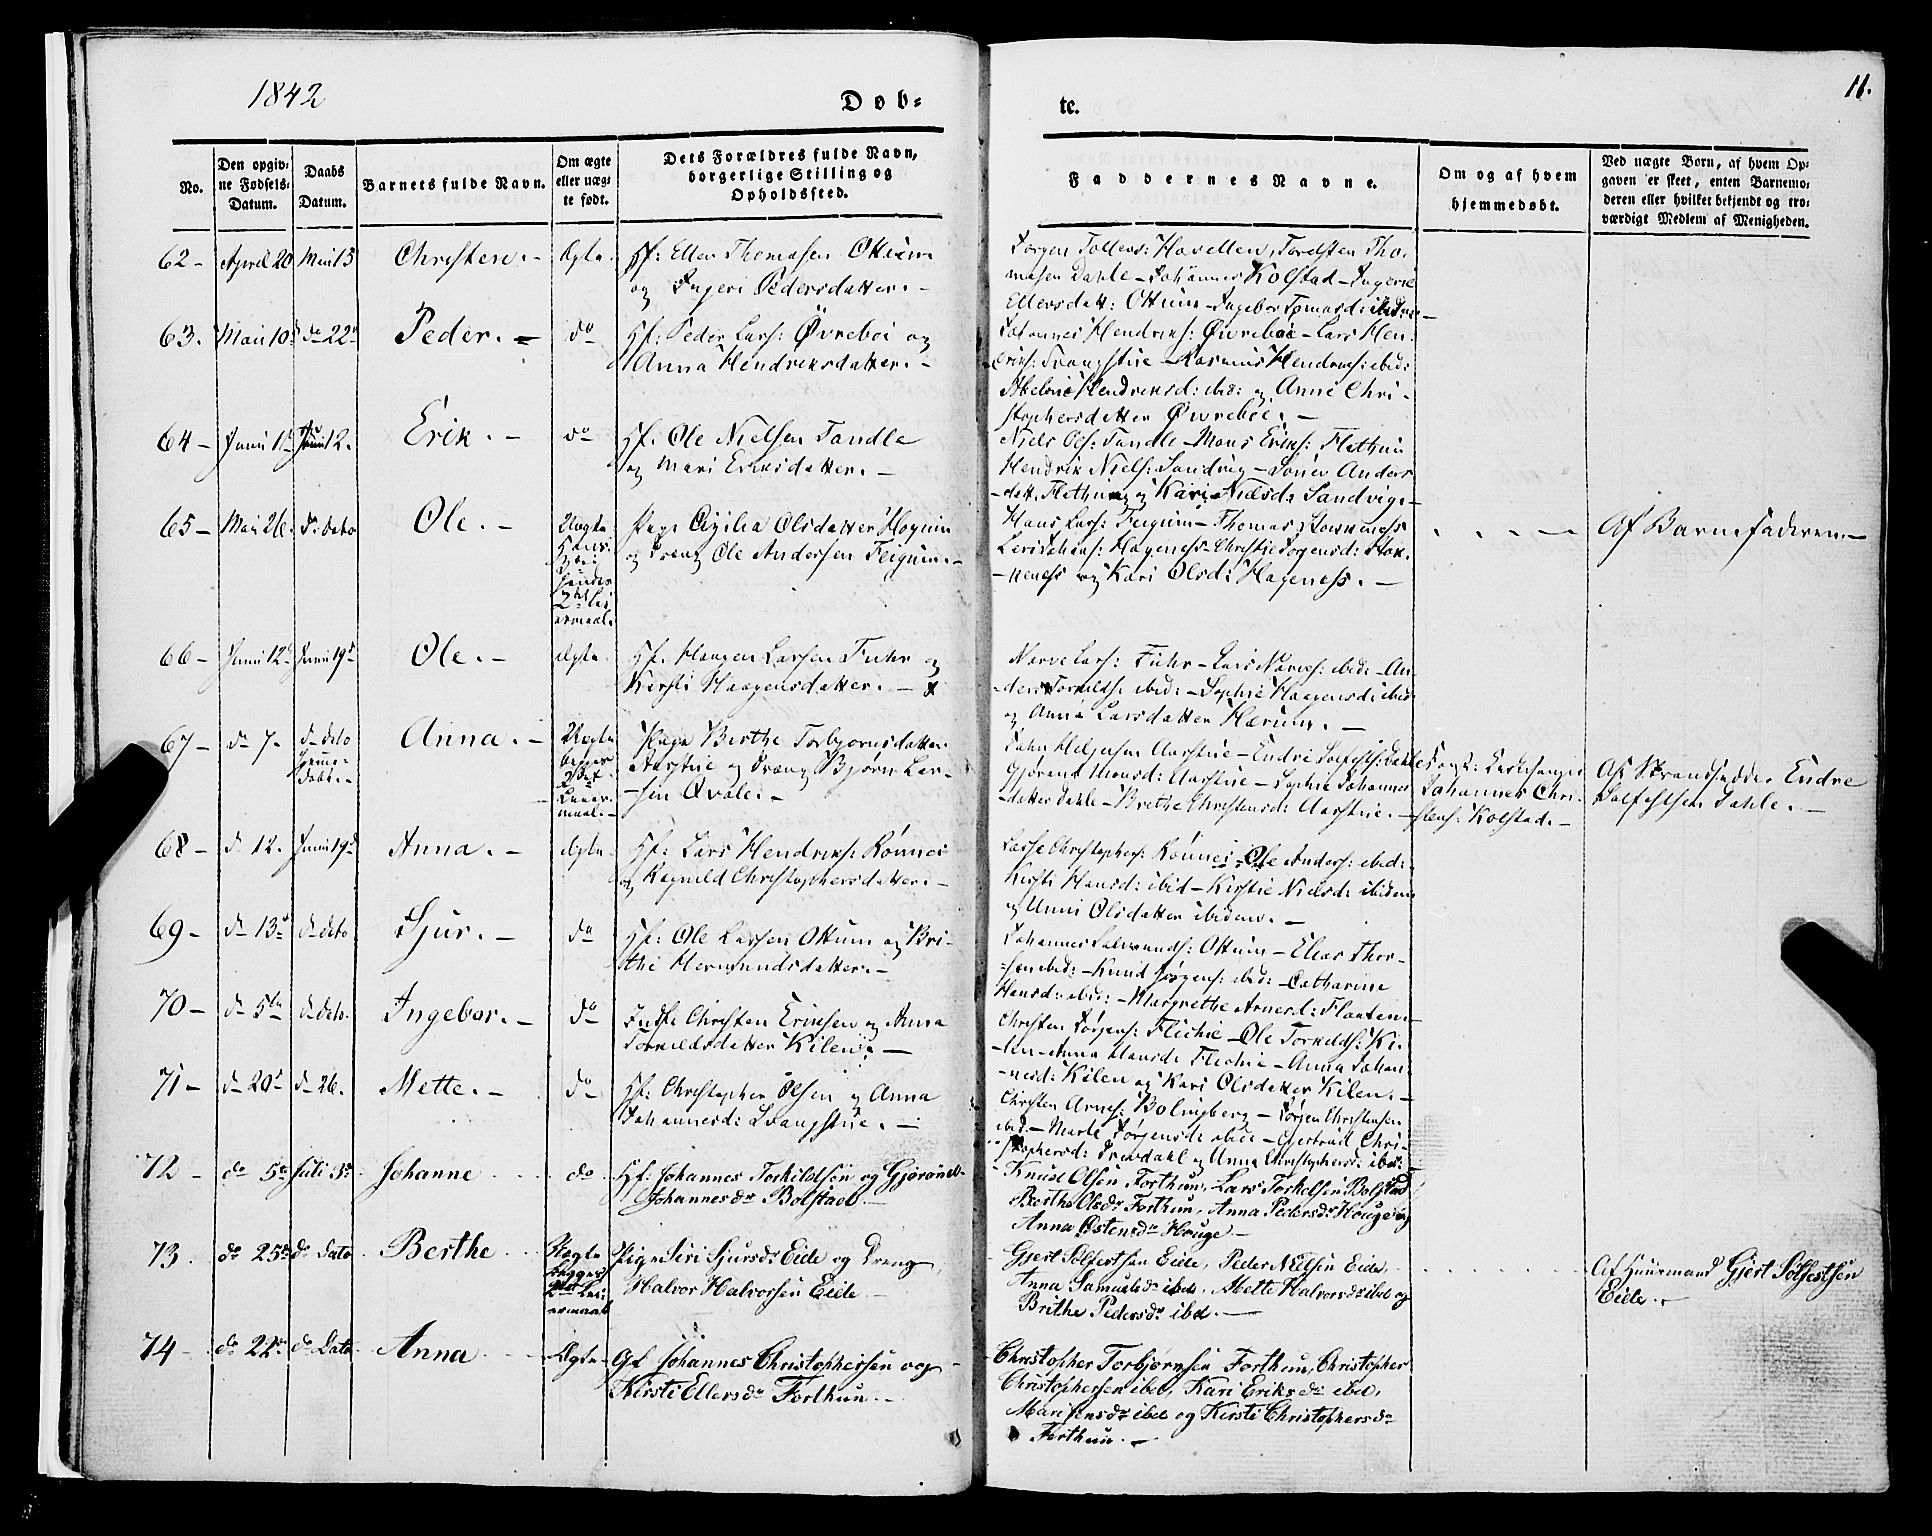 1842
Døb-
te.
11.
No.
Den opgiv-
ne Fødsels-
Datum.
Daabs
Datum.
Barnets fulde Navn.
Om ægte
eller uæg-
te født.
Dets Forældres fulde Navn,
borgerlige Stilling og
Opholdssted.
Faddernes Navne.
Om og af hvem
hjemmedøbt.
Ved uægte Børn, af hvem Op-
gaven er skeet, enten Barnemo-
deren eller hvilket bekjendt og tro-
værdigt Medlem af Menigheden.
62 - April 20 Mai 13 Christen. - Ægte.
Hf: Eller Thomasen Ottum
og Ingeri Pedersdatter. -
masen Dahle - Johannes Kolstad - Ingeri
Ellersdatt: Ottum -
63. Mai 10 do 22 Peder. - do
Hf: Peder Lars: Øvrebøi og
Anna Hendriksdatter. -
Johannes Hendriks: Øvrebøe - Lars Hen-
Rasmus Hendriks: ibid:
Hendriksd: ibid: og Anne Chri-
stophersdatter Øvrebøe. -
64 - Juni 1 Juni 12. Erik. - do
Hf. Ole Nielsen Tandle
og Mari Eriksdatter. -
Niels Ols: Tandle - Mons Eriks: Flathun
Hendrik Niels: Sandvig - Anders
datt. Flathun og Kari Nielsd: Sandvig. -
65 - Mai 26. do dito Ole. - Uægte
Pige Cicilia Olsdatter Høgum
og Dreng Ole Andersen Feigum. -
Hans Lars: Feigum - Thomas
Hageness - Christie Jørgensd:
og Kari Olsd: Hageness. -
Af Barnefaderen. -
66 - Juni 12 Juni 19d Ole. - Ægte.
Hf. Haagen Larsen Fuhr og
Kirsti Haagensdatter. -
Narve Lars: Fuhr - Lars Narves: ibid: - An-
ders Torkilds: ibid: - Sophie Haagensd: ibid
og Anna Larsdatter Hærum. -
67 - do 7. do dito Anna. - Uægte
Pige Berthe Torbjørnsdatter
og Dreng Bjørn Lar-
sen Qvale. -
John Helgesen - Endre Solfests: Dahle
Sophie Johannes
datter Dahle - Brithe Christensd:
Johannes Chri-
stens: Kolstad. -
Af Strandsidder Endre
Solfestsen Dahle. -
68 - do 12. Juni 19d Anna. - Ægte
Hf: Lars Hendriks: Rønnei
og Ragnild Christophersdatter. -
Lasse Christophers: Rønnei - Ole Anders: ibid:
Kirsti Hansd: ibid - Kirstie Nielsd: ibidem
og Unni Olsdatter ibidem. -
69 - do 13 do dito Sjur. - do
Hf: Ole Larsen Ottum og Bri-
the Hermundsdatter. -
Johannes Salmunds: Ottum - Elias Thor-
sen ibid: - Knud Jørgens: ibid: - Catharine
Hansd: ibid: - Margrethe Arnesd: Flaaten. -
70 - do 5te do dito. Ingebor. - do
Christen Eriksen og Anna
Torkildsdatter Kilen. -
Christen Jørgens: Flichie - Ole Torkilds: Ki-
len - Anna Hansd: Flichie - Anna Johan-
nesd: Kilen og Kari Olsdatter Kilen. -
71 - do 20d do 26. Mette. - do
Hf: Christopher Olsen og Anna
Johannesd:
Christen Arnes: Bolingberg - Jørgen Christensen
ibid: - Marte Jørgensd: ibid - Gjertrud Chri-
stophersd: Drevdahl og Anna Christophersd: ibid:
72 - do 5te Juli 3d Johanne do
Hf: Johannes Torkildsen og Gjørond
Johannesdr Bolstad -
Knud Olsen Forthun, Lars Torkelsen Bolstad
Berthe Olsdr Forthun, Anna Pedersdr Houge og
Anna Østensdr Houge -
73. do 25de do Dato Berthe Uægte
Pige Siri Sjursdr Eide og Dreng
Halvor Halvorsen Eide -
Gjert Solfestsen Eide, Peder Nielsen Eide,
Anna Samuelsdr ibd, Mette Halvorsdr ibd og
Brithe Pedersdr ibd. -
Af Huusmand Gjert Solfestsen
Eide. -
74 - do 22de do Dato Anna Ægte
Gf Johannes Christophersen og
Kirsti Ellersdr Forthun -
Christopher Torbjørnsen Forthun, Christopher
Christophersen ibd, Kari Eriksdr ibd,
Mari Jensdr ibd og Kirsti Christophersdr
Forthun. -